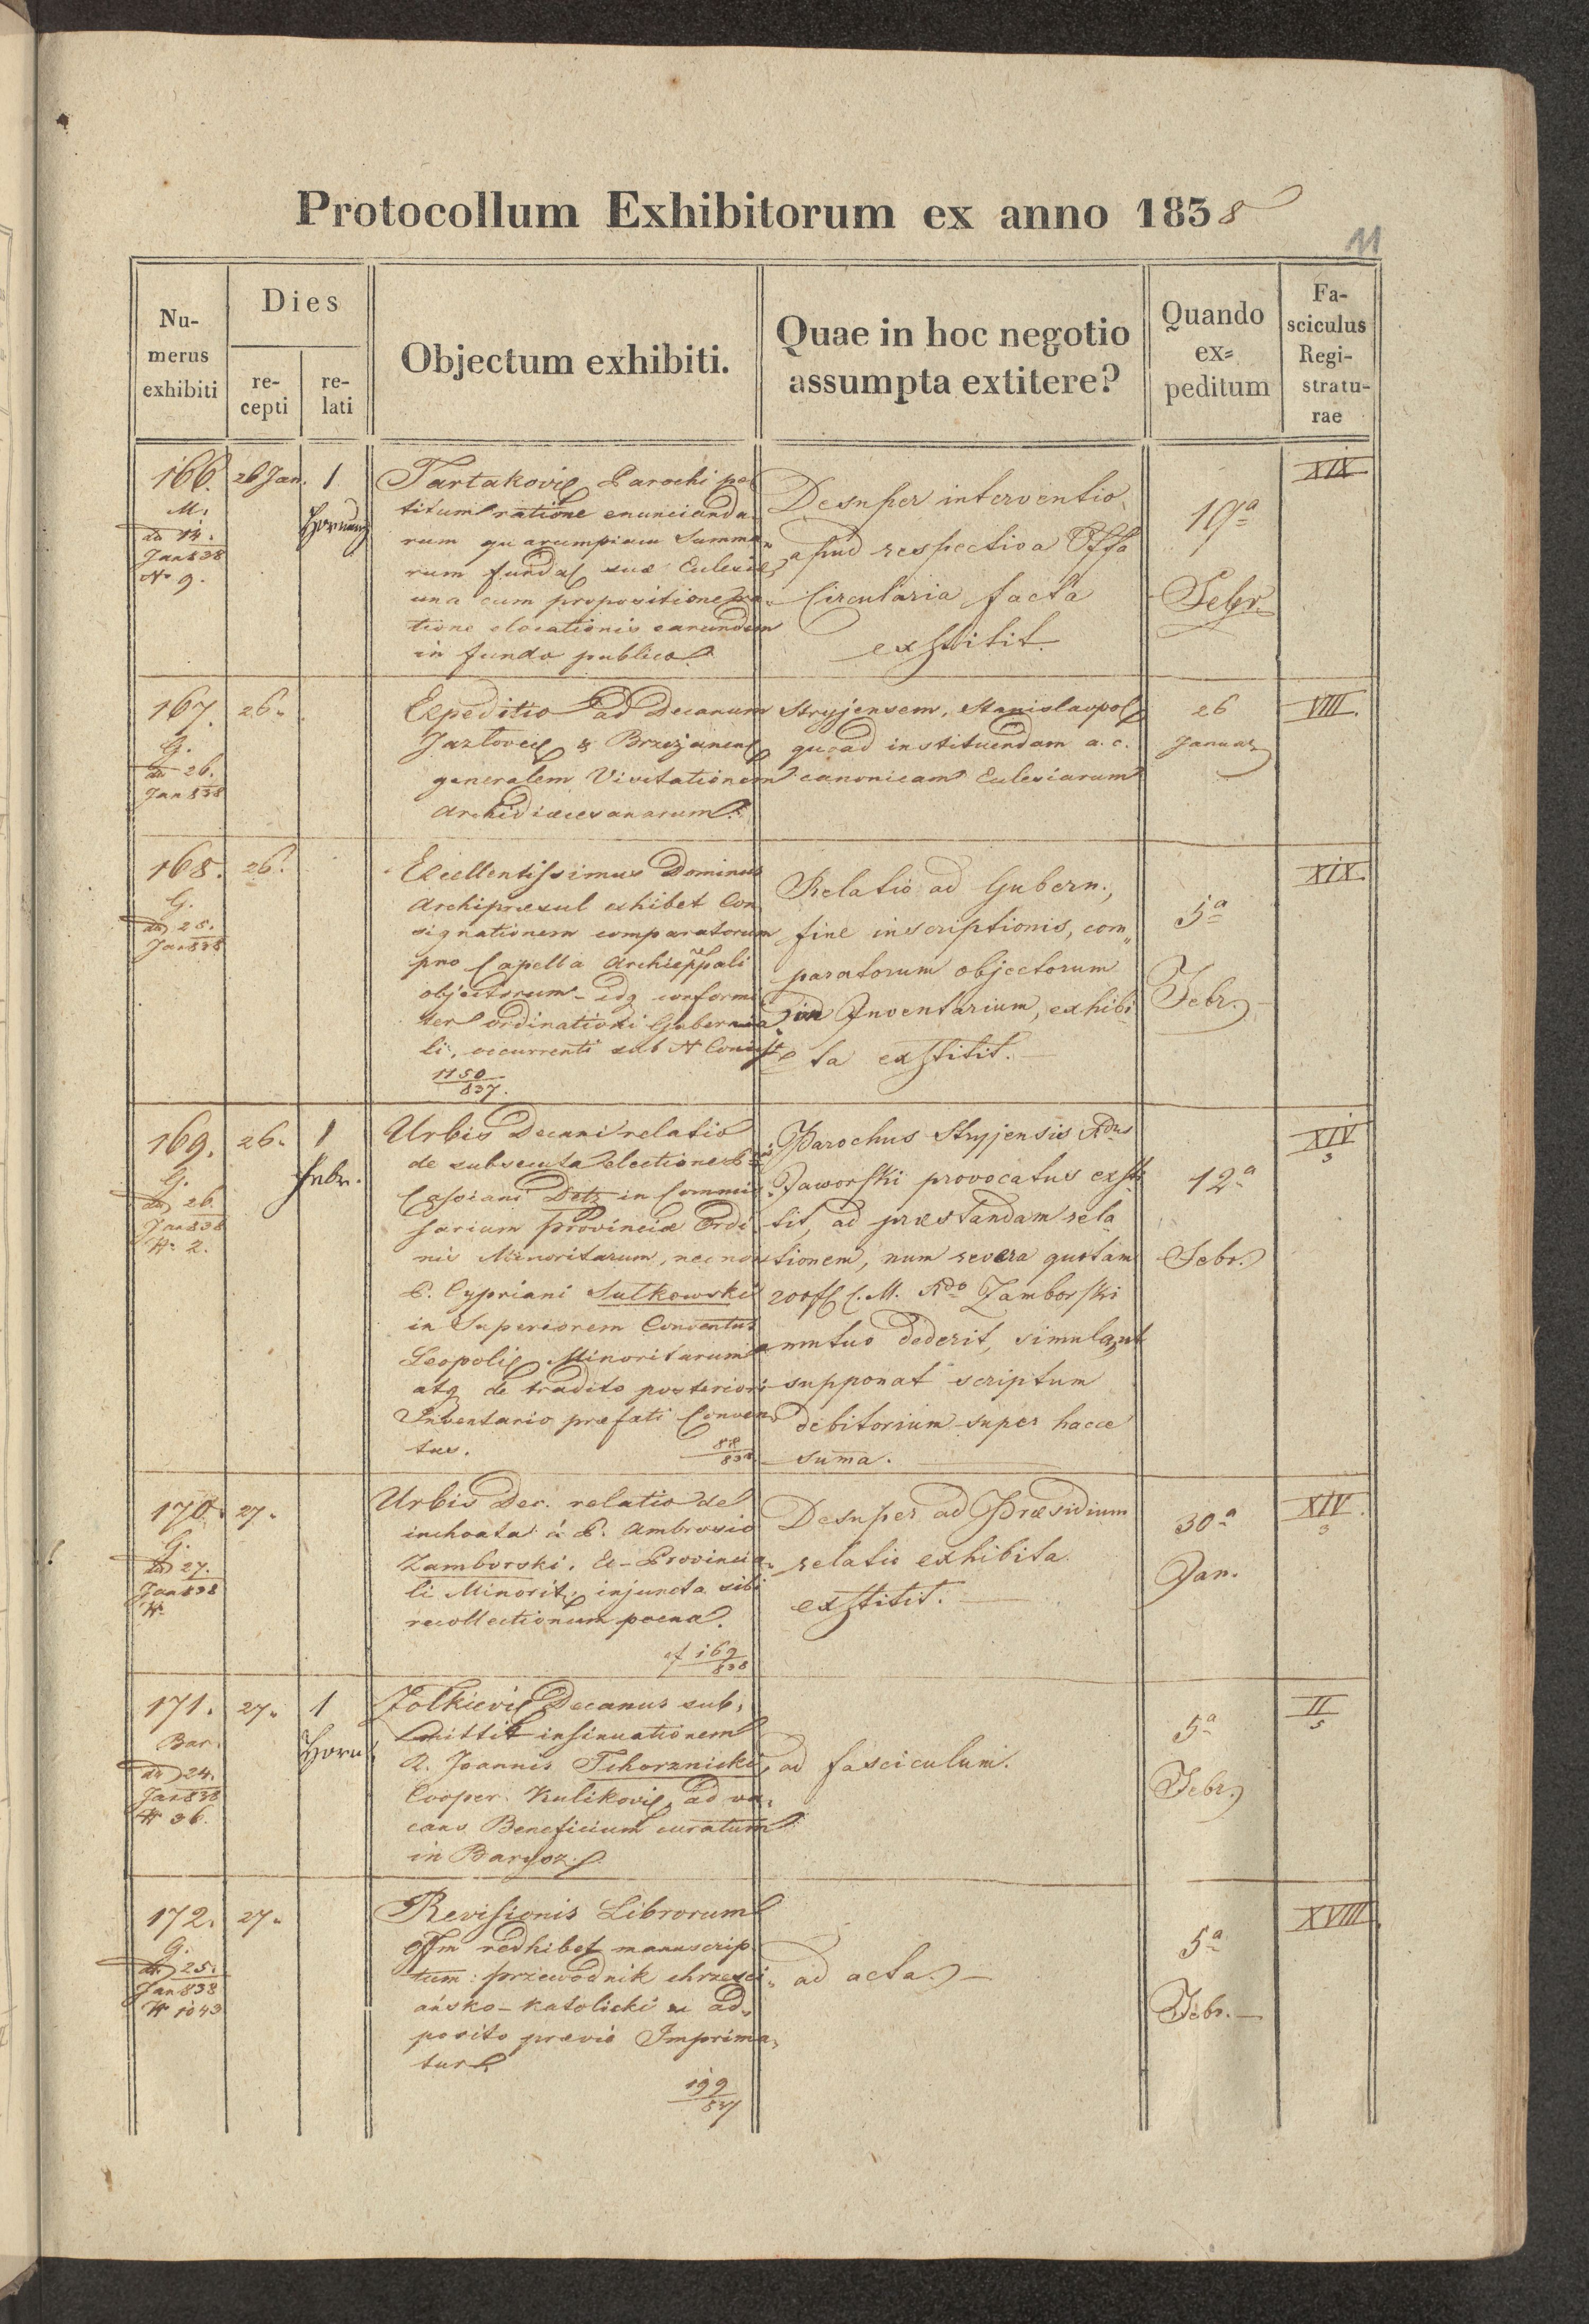 Protocollum Exhibitorum ex anno 1838
11
Nu-
merus
exhibiti
Dies
re-
cepti
re-
lati
Objectum exhibiti.
Quae in hoc negotio
assumpta extitere?
Quando
ex=
peditum
Fa-
sciculus
Regi-
stratu-
rae
166.
M.
14.
Jan 838
N 9.
26 Jan.
1
Hornung
Parochi pe
titum ratione enuncianda
rum quarumpiam Summa
rum suae Eclesiae
una cum propositione ra
tione elocationis earundem
in fundo publico.
Desuper interventio
apud respectiva Offa
Circularia facta
exstitit.
19a
Febr.
XIX
167.
G.
26.
Jan 838
26.
Expeditio ad Decanum Stryjensem, Stanislaopol
& quoad instituendam a. c.
generalem Visitationem canonicam Eclesiarum
Archidiæcesanarum.
26
Januar
VIII.
168.
G.
25.
Jan 838
26.
Excellentissimus Dominus
Archipræsul exhibet Con
signationem comparatorum
pro Capella
objectorum - idq conformi
ter ordinationi Gubernia
li, occurrenti sub N Consist
1150
837.
Relatio ad Gubern.,
fine inscriptionis, com„
paratorum objectorum
in Inventarium, exhibi
ta exstitit.
5a
Febr.
XIX.
169.
G.
26.
Jan 838
N. 2.
26.
1
Febr.
Urbis Decani relatio
de subsecuta electione
Cassiani Detz in Commis
sarium Provinciæ Ordi
nis Minoritarum, nec non
P. Cypriani Sulkowski
in Superiorem Conventus
Leopol Minoritarum
atq de tradito posteriori
Inventario præfati Conven
tus.
88
838
Parochus Stryjensis Rdus
Jaworski provocatus exsti
tit, ad præstandam rela
tionem, num revera
200 f C. M. Rdo Zamborski
mutuo dederit, simul aut
supponat scriptum
debitorium super hacce
suma.
12a
Febr.
XIV
3
170.
G.
27.
Jan 838
N.
27.
Urbis Dec. relatio de
inchoata à P. Ambrosio
Zamborski, Ex-Provincia
li Minorit, injuncta sibi
recollectionum poena.
cf 169
838
Desuper ad Præsidium
relatio exhibita
exstitit.
30a
Jan.
XIV.
3
171.
Bar.
24.
Jan 838
N 36.
27.
1
Horn
Zolkiev Decanus sub„
mittit insinuationem
R. Joannis Tchorznicki,
Cooper. Kulikov, ad va„
cans Beneficium curatum
in
ad fasciculum.
5a
Febr.
II
5
172.
G.
25.
Jan 838
N 1043
27.
Revisionis Librorum
offm redhibet manuscrip
tum: przewodnik chrzesci„
ańsko-katolicki ad„
posito prævio Imprima„
tur
199
837
ad acta.
5a
Febr.
XVIII